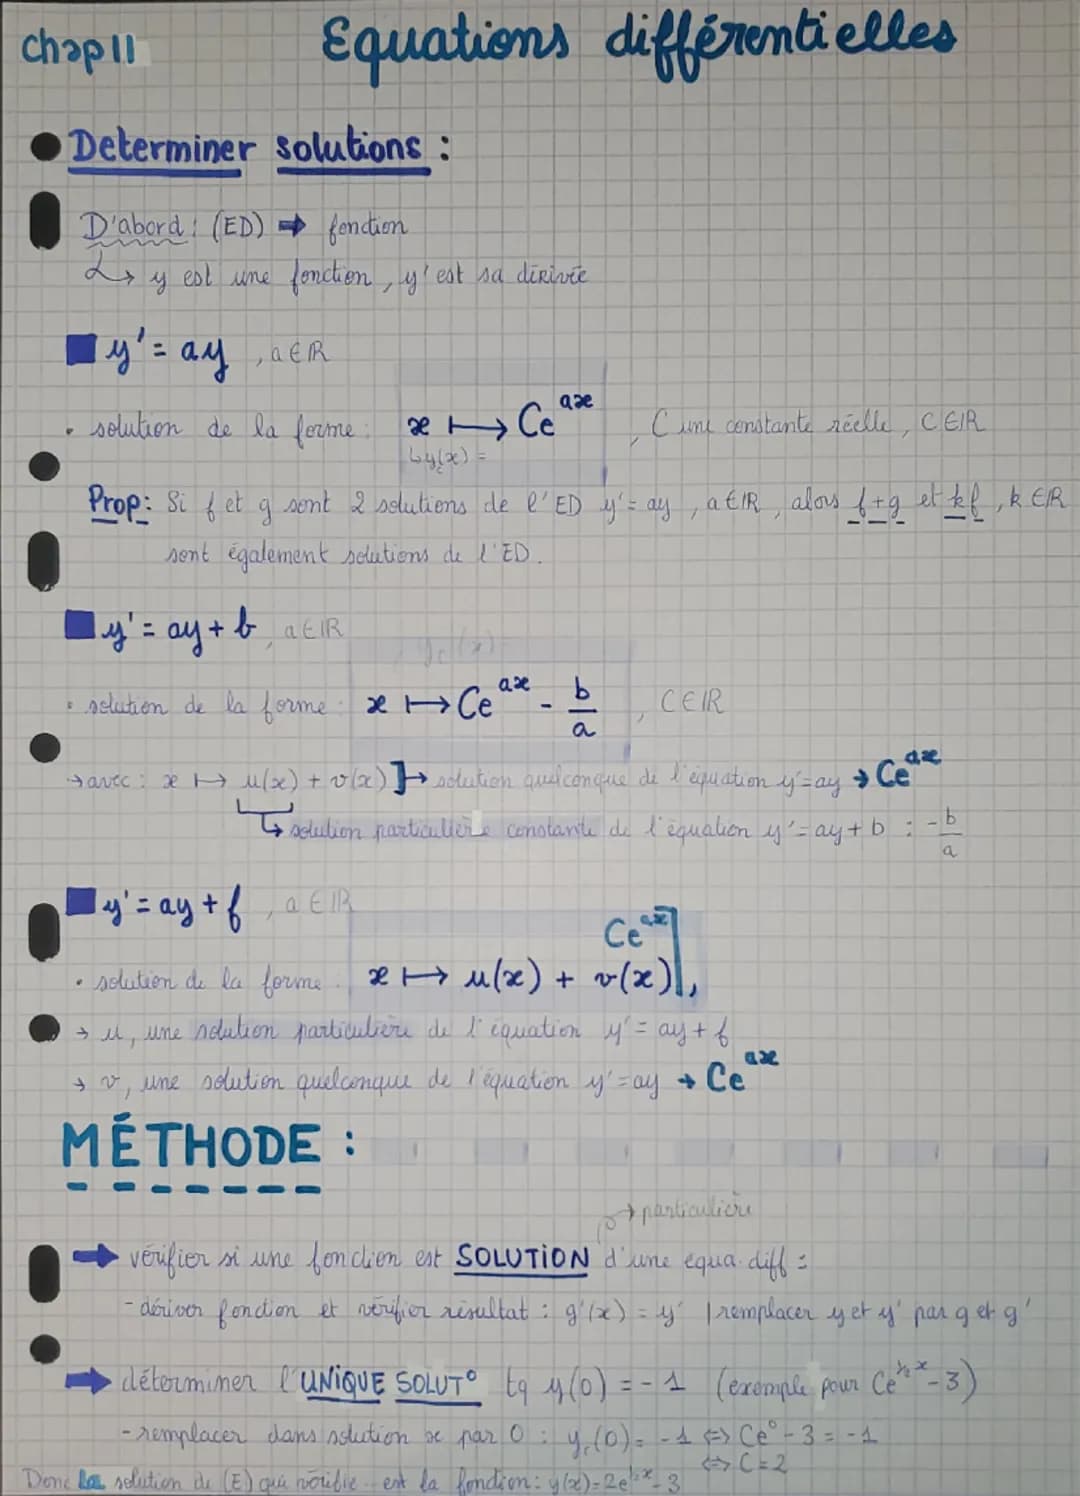 Chap 11
Equations différentielles
Determiner solutions :
D'abord : (ED) ➡ fonction
↳ y est une fonction, y' est sa dérivée
y' = ay , a ∈ ℝ
• solution de la forme : x ⟼ Ce^{ax} , C une constante réelle, C ∈ ℝ
↳ y_c(x) =
Prop : Si f et g sont 2 solutions de l'ED y' = ay , a ∈ ℝ , alors f+g et kf , k ∈ ℝ
sont également solutions de l'ED.
y' = ay + b , a ∈ ℝ
y_c(x)
• solution de la forme : x ⟼ Ce^{ax} - b/a , C ∈ ℝ
→ avec : x ⟼ u(x) + v(x) ]→ solution quelconque de l'équation y'=ay → Ce^{ax}
↳ solution particulière constante de l'équation y' = ay + b : -b/a
y' = ay + f , a ∈ ℝ
Ce^{ax}
• solution de la forme : x ⟼ u(x) + v(x) ,
→ u, une solution particulière de l'équation y' = ay + f
→ v, une solution quelconque de l'équation y' = ay → Ce^{ax}
MÉTHODE :
→ particulière
➡ vérifier si une fonction est SOLUTION d'une équa. diff :
- dériver fonction et vérifier résultat : g'(x) = y' | remplacer y et y' par g et g'
➡ déterminer l'UNIQUE SOLUT° tq y(0) = -1 (exemple pour Ce^{½x} - 3)
- remplacer dans solution x par 0 : y_c(0) = -1 ⇔ Ce⁰ - 3 = -1
⇔ C = 2
Donc la solution de (E) qui vérifie .. est la fonction : y(x) = 2e^{½x} - 3